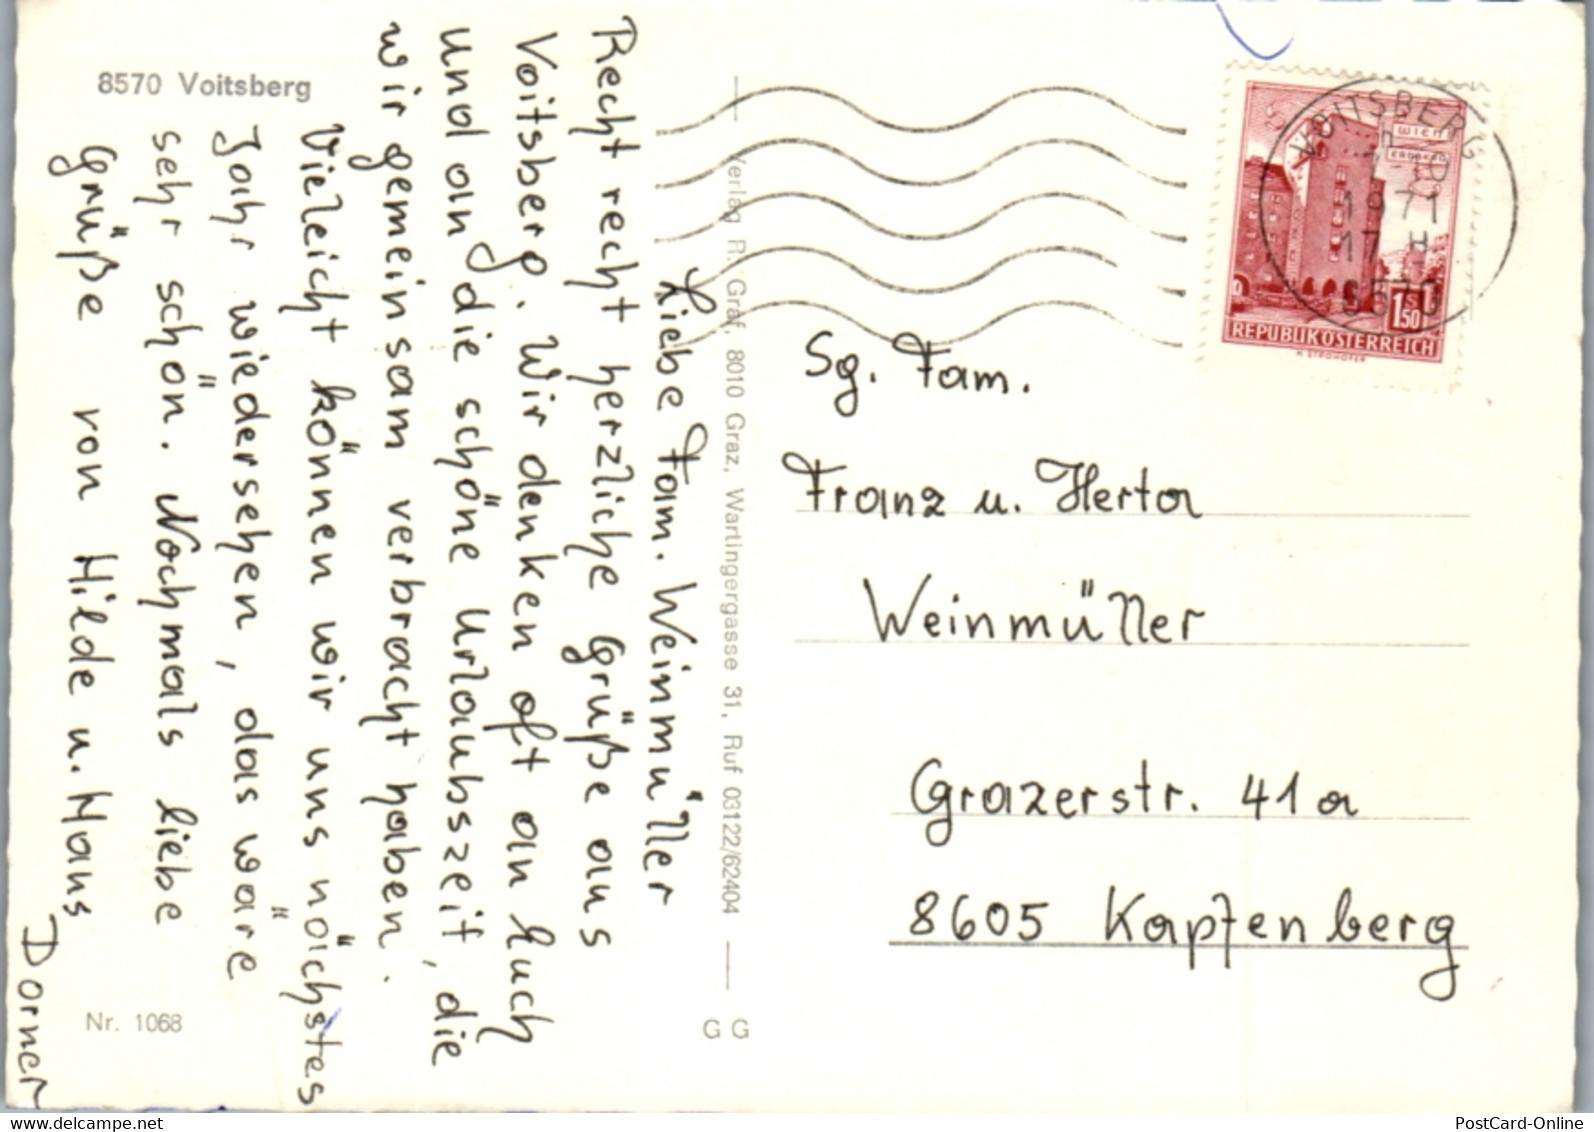 8570 Voitsberg
Liebe Fam. Weinmüller
Recht recht herzliche Grüße aus
Voitsberg. Wir denken oft an Euch
und an die schöne Urlaubszeit, die
wir gemeinsam verbracht haben.
Vieleicht können wir uns nächstes
Jahr wiedersehen, das wäre
sehr schön. Nochmals liebe
Grüße von Hilde u. Hans
Dorner
Nr. 1068
Verlag R. Graf, 8010 Graz, Wartingergasse 31, Ruf 03122/62404
G G
VOITSBERG
1971
17 H
8570
WIEN
ERDBERG
1.50
REPUBLIK ÖSTERREICH
H. STROHOFER
Sg. Fam.
Franz u. Herta
Weinmüller
Grazerstr. 41a
8605 Kapfenberg
PostCard-Online